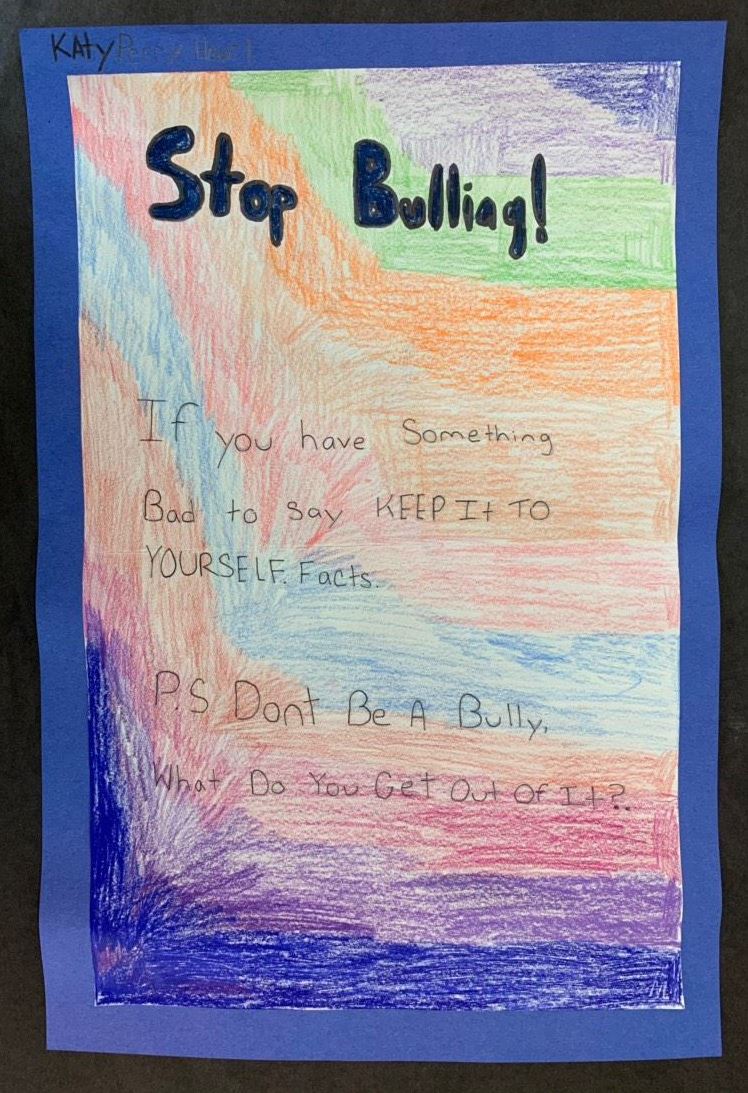 KAty Perry
Stop Bulling!
If you have Something
Bad to say KEEP It TO
YOURSELF. Facts.
P.S Dont Be A Bully,
What Do You Get Out Of It?.